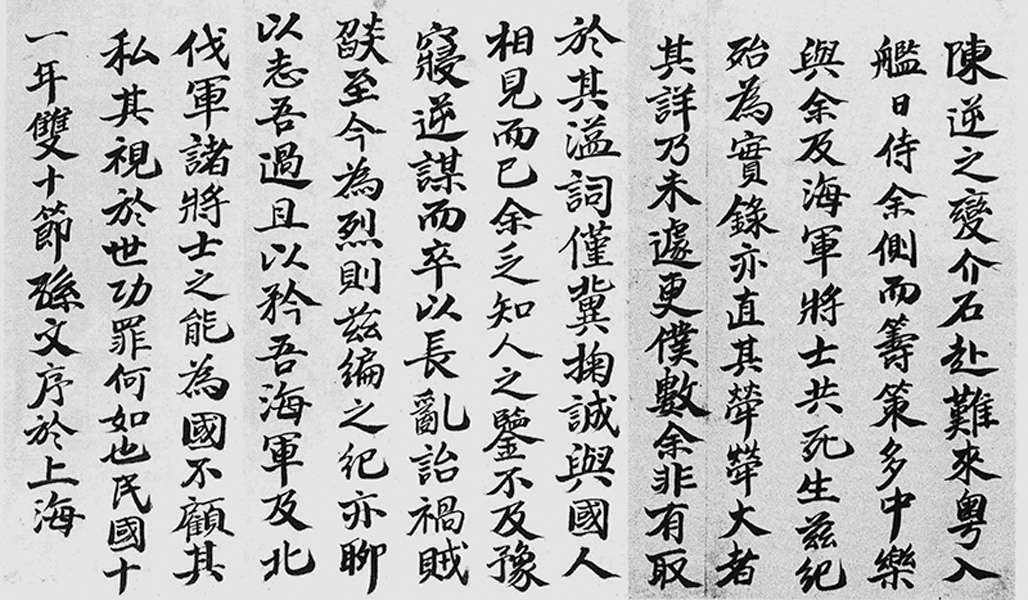 陳逆之變介石赴難來粵入
艦日侍余側而籌策多中樂
與余及海軍將士共死生茲紀
殆為實錄亦直其犖犖大者
其詳乃未遽更僕數余非有取
於其溢詞僅冀掬誠與國人
相見而已余乏知人之鑒不及豫
寢逆謀而卒以長亂詒禍賊
燄至今為烈則茲編之紀亦聊
以志吾過且以矜吾海軍及北
伐軍諸將士之能為國不顧其
私其視於世功罪何如也民國十
一年雙十節孫文序於上海